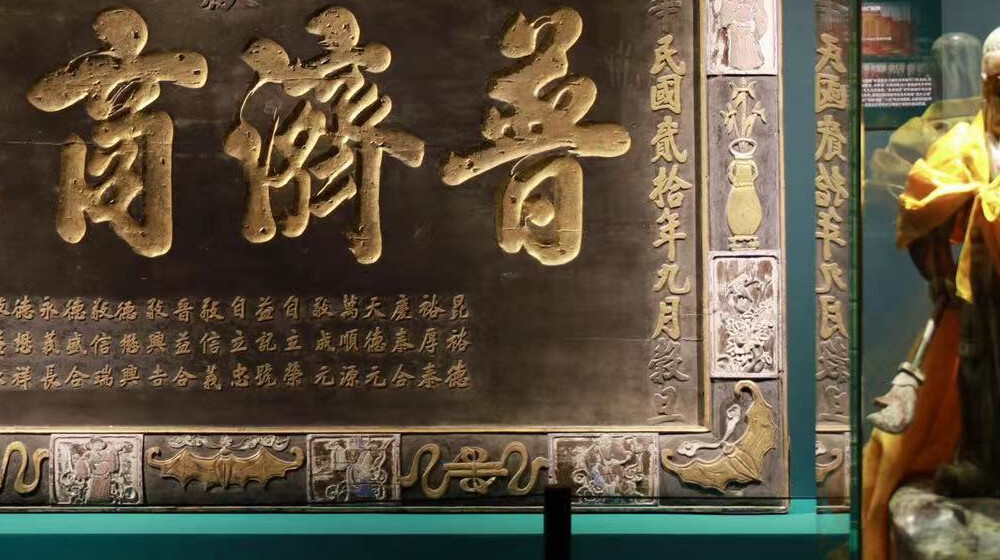 普濟商
民國貳拾年九月穀旦
昆裕德
裕厚泰
慶泰合
天德元
萬順源
敬成元
自立榮
益記號
自立忠
敬信義
晉益合
敬興吉
德懋興
敬信瑞
德盛合
永義長
德懋祥
民國貳拾年九月穀旦